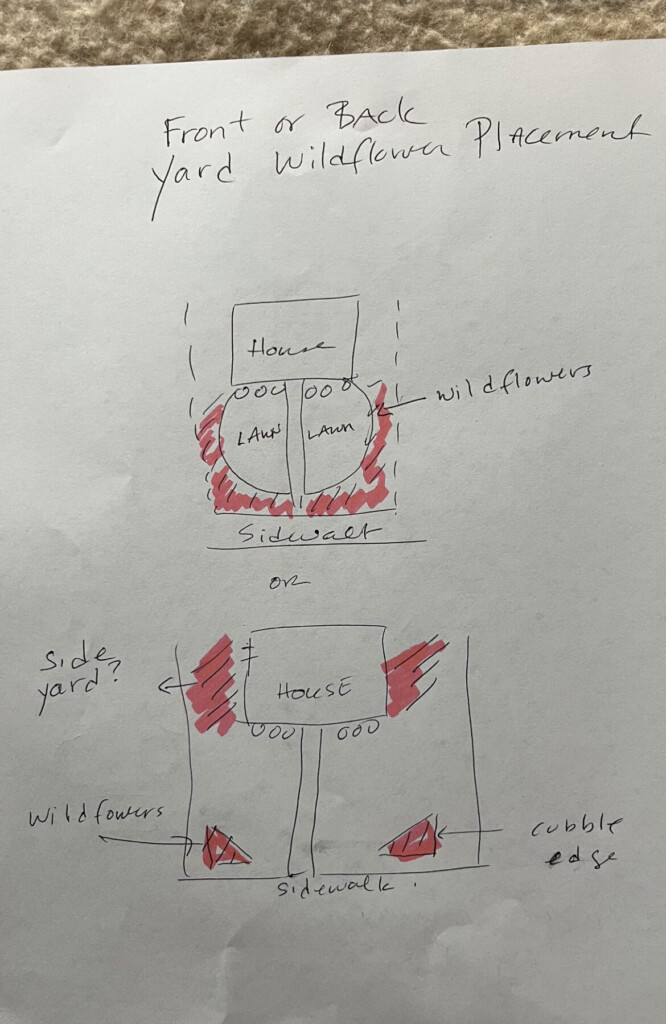 Front or BAck
Yard Wildflower PlAcement
House
wildflowers
LAWN
LAWN
Sidewalk
OR
Side
yard?
HOUSE
Wildfowers
cobble
edge
Sidewalk.